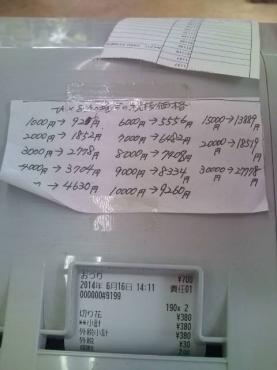 税抜価格
1000円→926円
6000円→5556円
15000円→13889円
2000円→1852円
7000円→6482円
20000円→18519円
3000円→2778円
8000円→7408円
30000円→27778円
4000円→3704円
9000円→8334円
→4630円
10000円→9260円
おつり ¥700
2014年 6月16日 14:11 責任01
000000#9199
190x 2
切り花 ¥380
**小計 ¥380
外税小計 ¥380
外税 ¥30